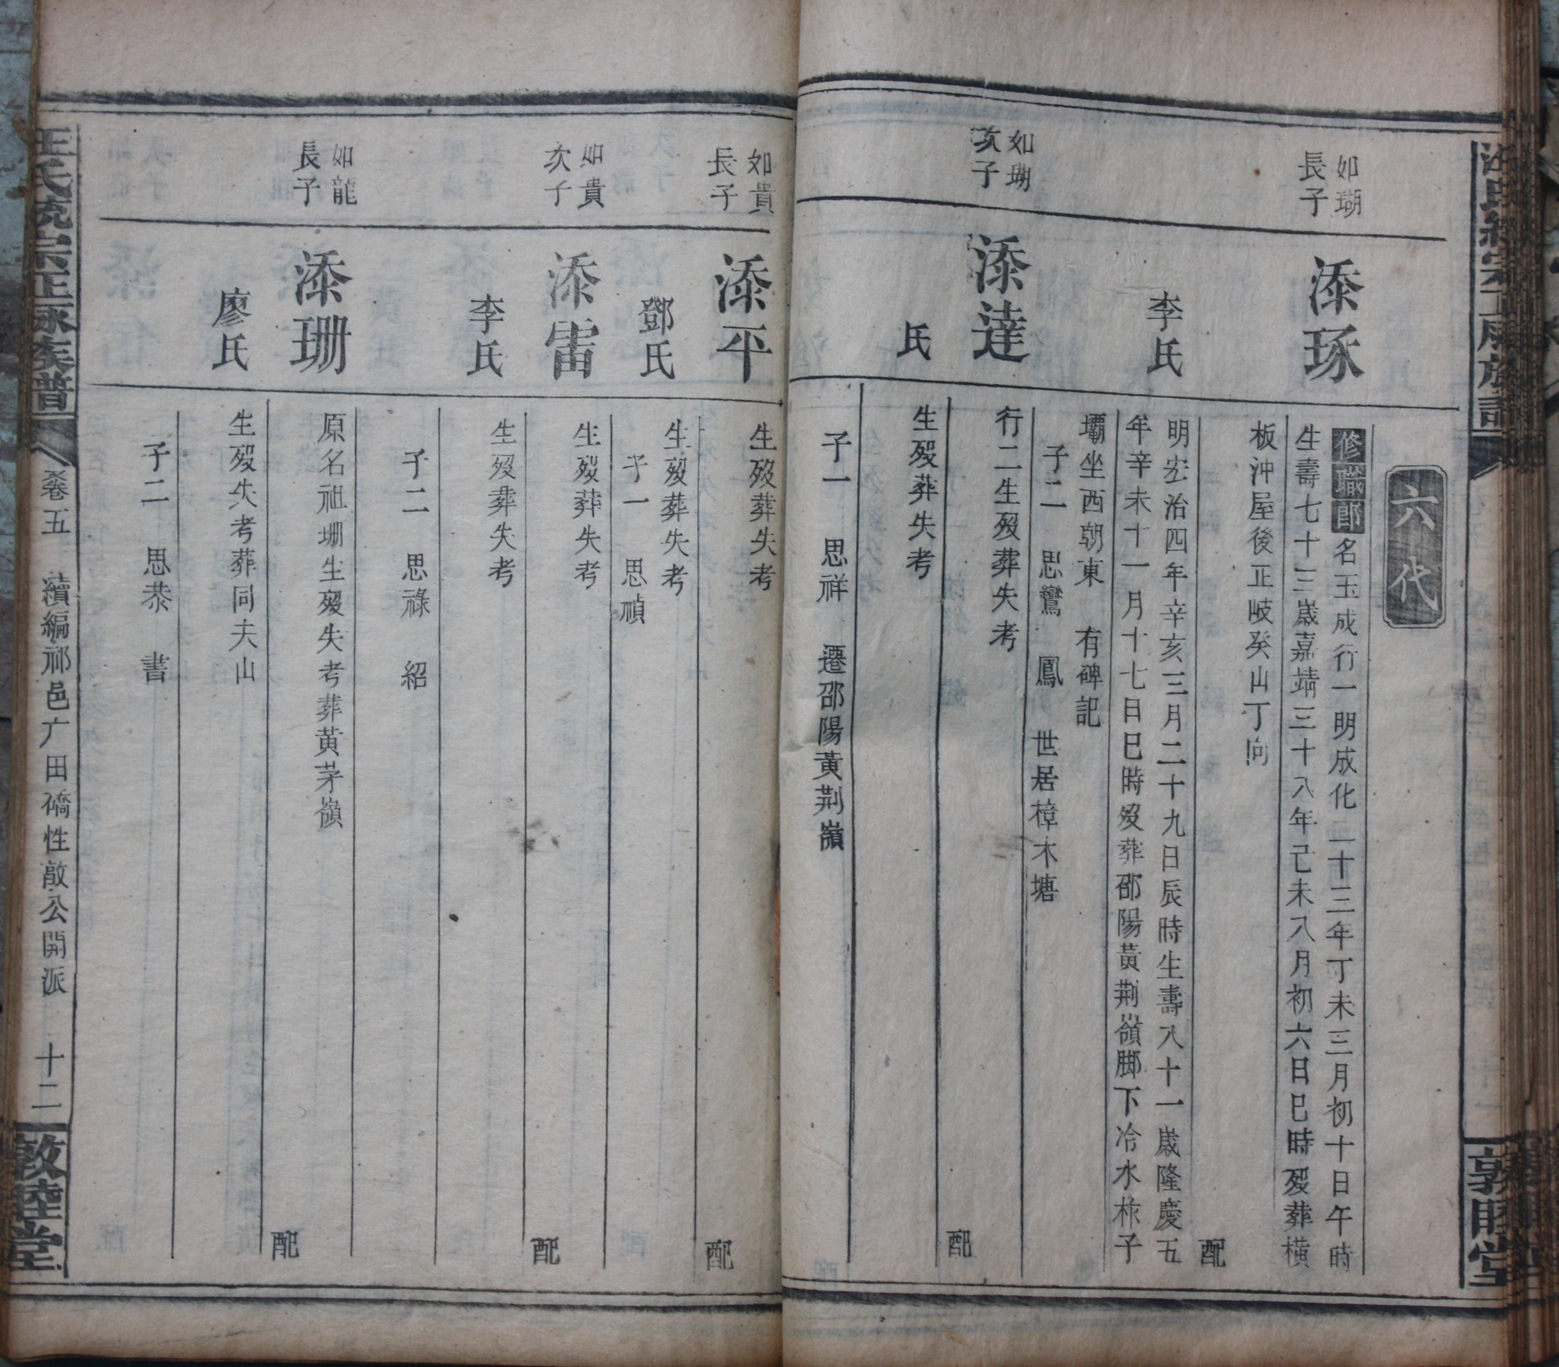 六代
如瑚
長子
添琢
修職郎名玉成行一明成化二十三年丁未三月初十日午時
生壽七十三歲嘉靖三十八年己未八月初六日巳時歿葬橫
板沖屋後正岐癸山丁向
配
李氏
明宏治四年辛亥三月二十九日辰時生壽八十一歲隆慶五
年辛未十一月十七日巳時歿葬邵陽黃荆嶺脚下冷水栋子
壩坐西朝東 有碑記
子二 思鸞 鳳 世居樟木塘
如瑚
次子
添達
行二生歿葬失考
配
氏
生歿葬失考
子一 思祥 遷邵陽黃荆嶺
如貴
長子
添平
生歿葬失考
配
鄧氏
生歿葬失考
子一 思禎
如貴
次子
添雷
生歿葬失考
配
李氏
生歿葬失考
子二 思祿 紹
如龍
長子
添珊
原名祖珊生歿失考葬黃茅嶺
配
廖氏
生歿失考葬同夫山
子二 思恭 書
王氏統宗正脉族譜
卷五 續編邵邑广田礄性敵公開派 十二
敦睦堂